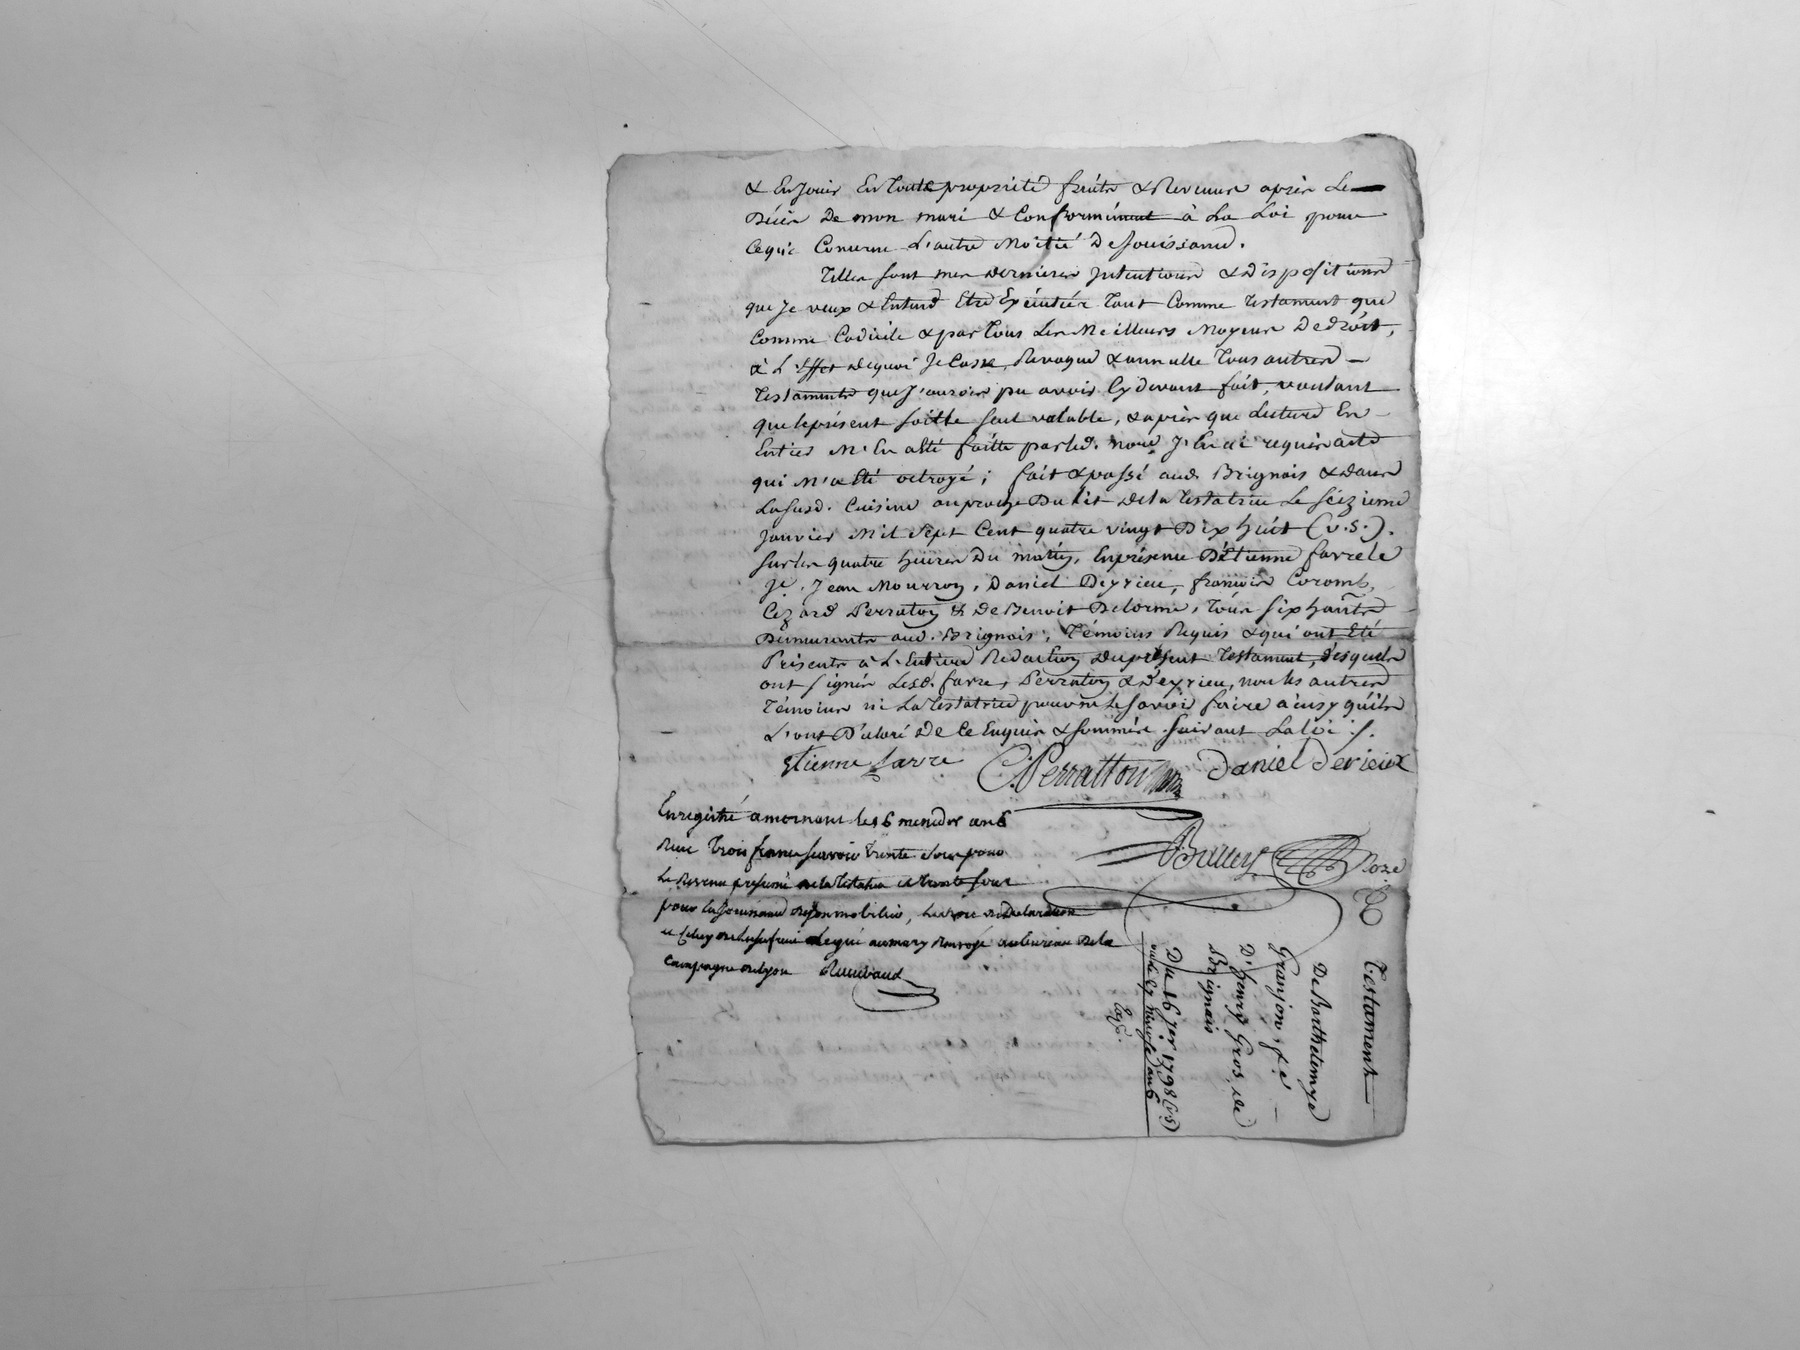 & En Jouir En Toute propriété fruits & Revenus après Le
Décès De mon mari & Conformément à La Loi pour
Cequi Concerne L'autre Moitié De Jouissance.
Telles sont mes dernieres Intentions & Dispositions
que Je veux & Entend Etre Exécutées Tant Comme Testament que
Comme Codicile & par Tous Les Meilleurs Moyens De droit,
à L'Effet dequoi Je Casse, Revoque & annulle Tous autres
Testaments que J'aurois pu avoir Cy devant fait, voulant
que leprésent soit le seul valable, & après que Lecture En
Entier M'En a Eté faitte par led. Nore J'En ai requis acte
qui M'a Eté octroyé; fait & passé aud. Brignais & dans
Lasusd. Cuisine auproche Du Lit De la Testatrice Le Seizieme
Janvier Mil Sept Cent quatre vingt Dix huit (v.s.).
Sur les quatre heures Du matin, En présence D'Etienne farre le
Je, Jean Mourron, Daniel Deyrieu, françois Coromb,
Cezard Perraton & De Benoit Delorme, Tous six habts
Demeurants aud. Brignais, Témoins Requis & qui ont Eté
Présents à L'Entiere Redaction Du présent Testament, desquels
ont signés Lesd. farre, Perraton & Deyrieu, non les autres
Témoins ni La Testatrice pour ne le savoir faire ainsy qu'ils
L'ont Déclaré De Ce Enquis & sommés suivant La loi ./.
Etienne farre C. Perratton Daniel Derieux
Enregistré a mornant le 16 messidor an 6
Recu Trois francs scavoir trente sous pour
Le Revenu présumé de la Testatrice et trente sous
pour La Jouissance de son mobilier, Le
de Lusufruit Legué au mary Renvoyé au bureau De la
Campagne de Lyon
Nore
T
Testament
De Barthelemye
Granjon fe
D'henry Gros de
Brignais
Du 16 Jer 1798 (v.s)